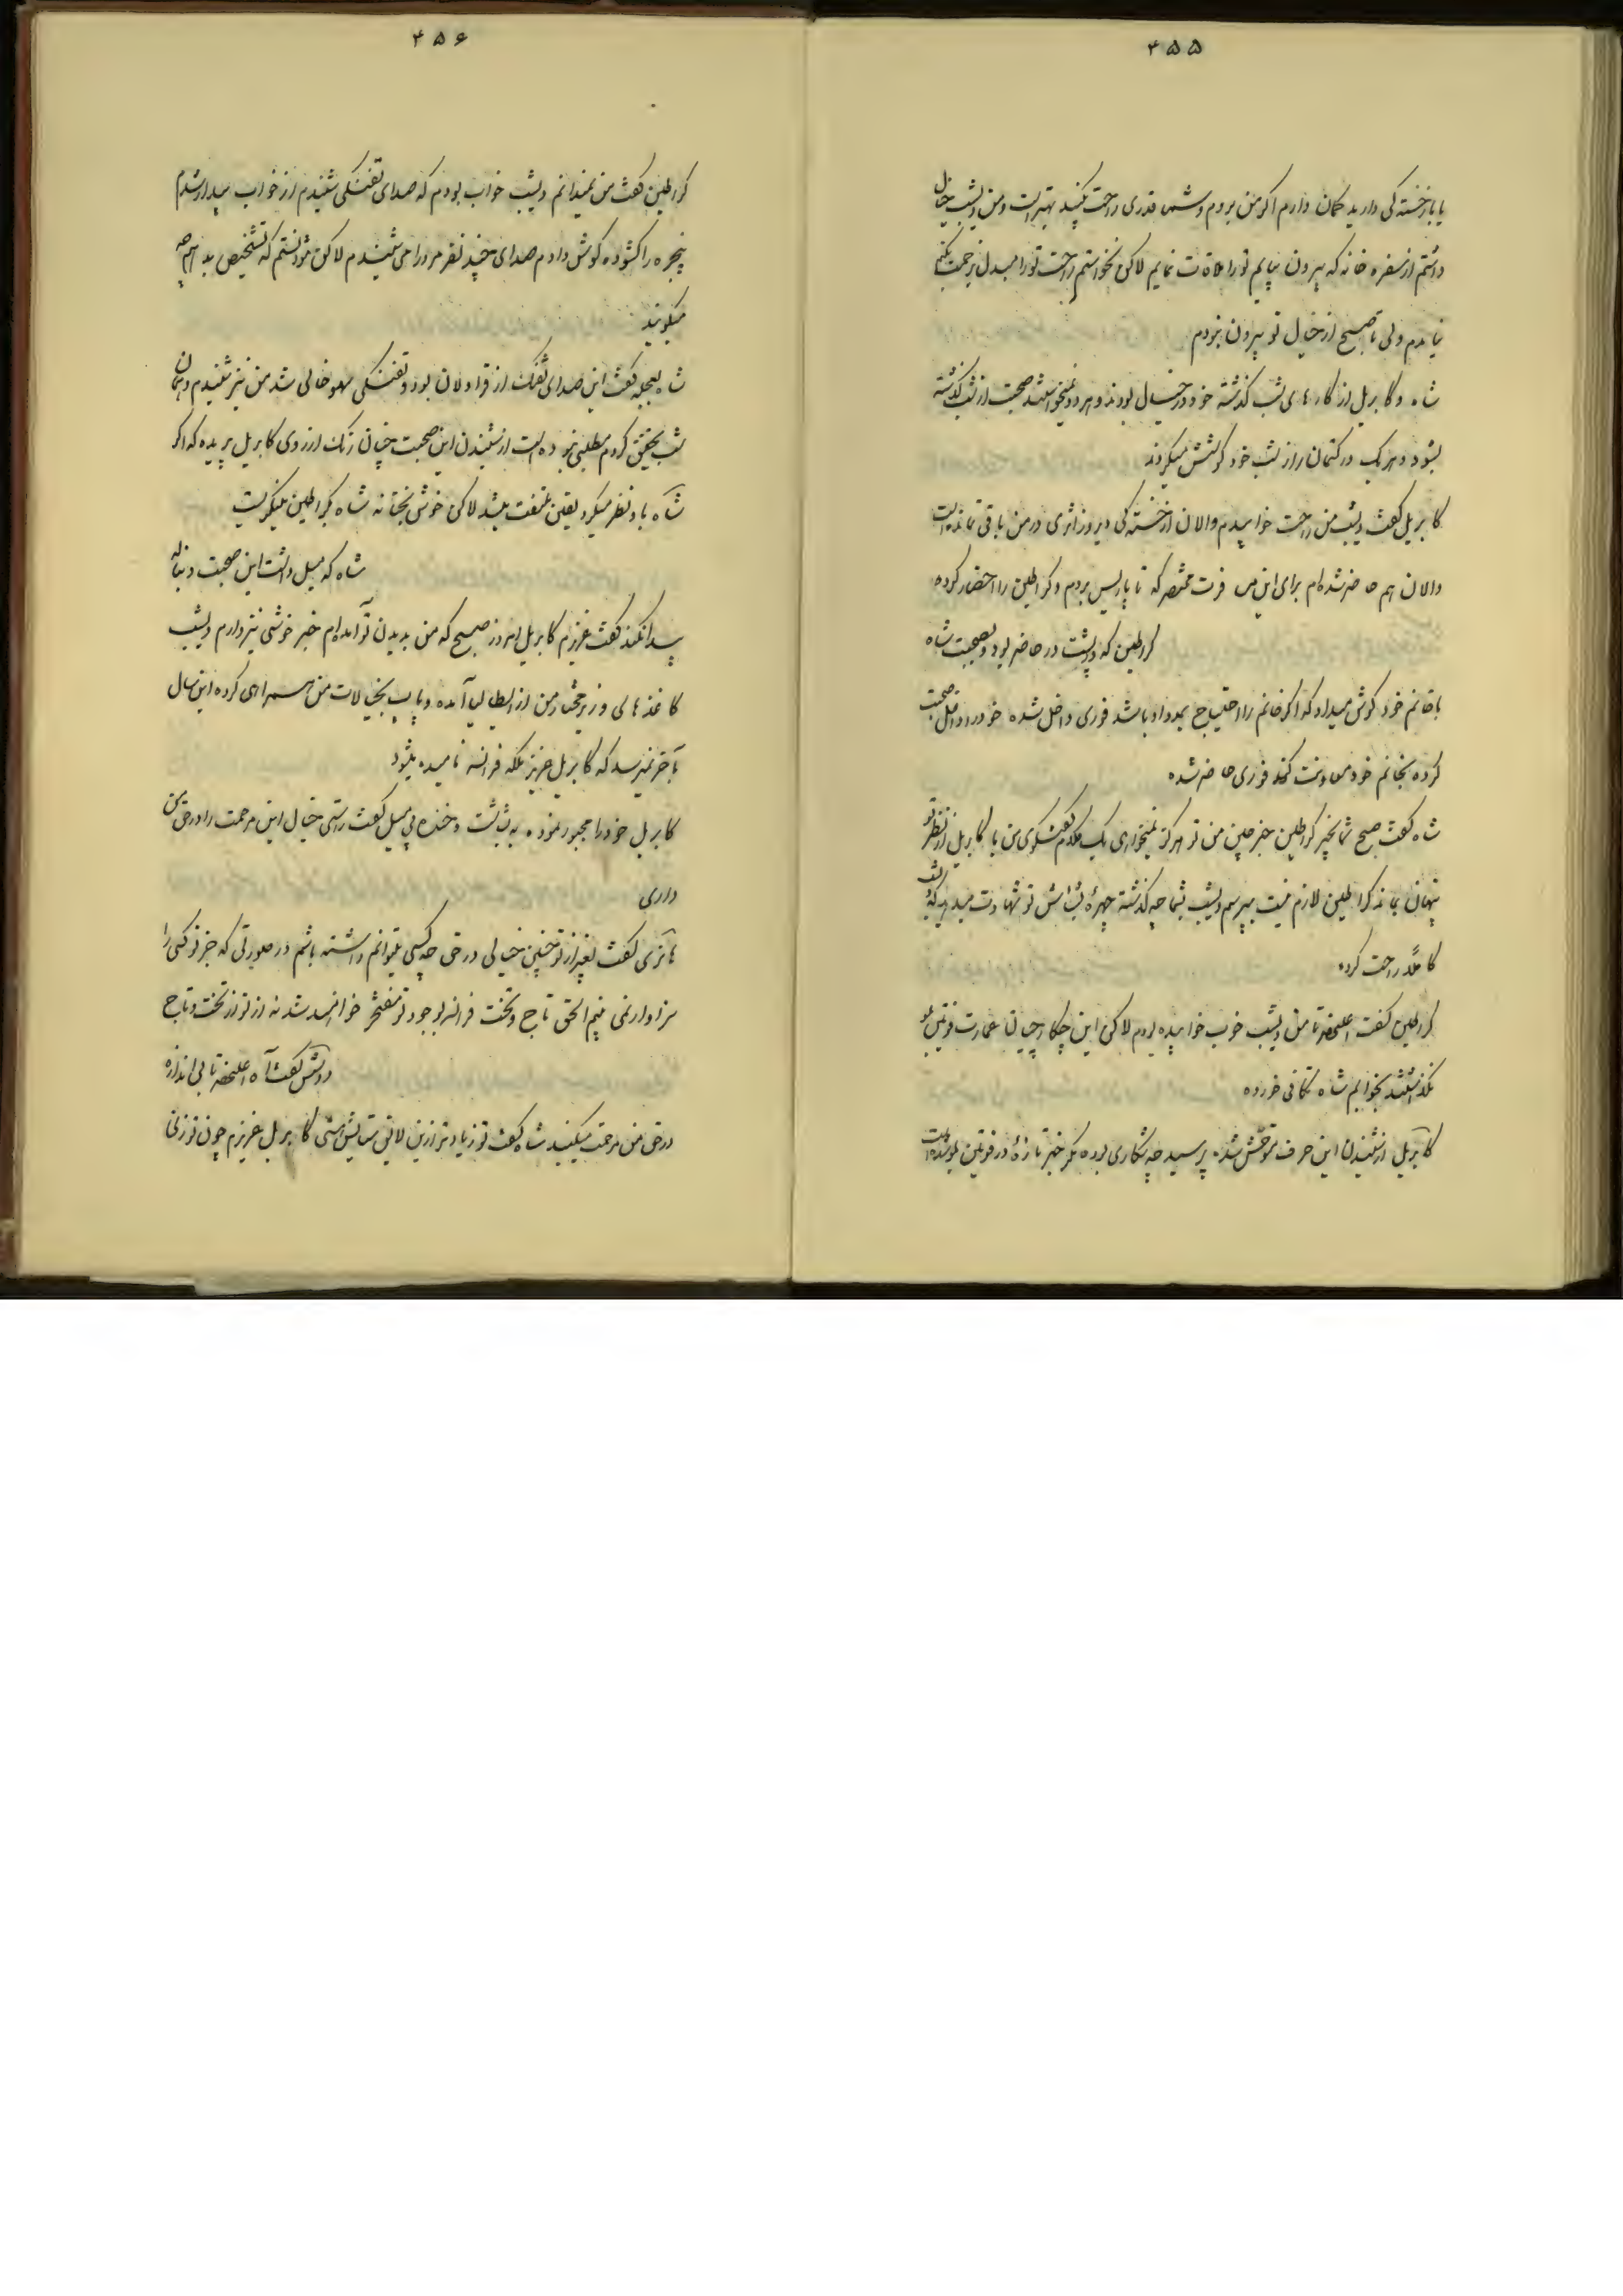 ۴۵۵
یا باز خستگی دارید گمان دارم اگر من بروم و شما قدری راحت بکنید بهتر است و من دیشب خیال
داشتم از سفره خانه که بیرون بیایم تو را ملاقات نمایم لاکن نخواستم راحت تو را مبدل بزحمت بکنم
نیامدم ولی تا صبح از خیال تو بیرون نبودم
شاه و کابریل از کارهای شب گذشته خود در خیال بودند و هر دو نمیخواستند صحبت از شب گذشته
بشود و هر یک در کتمان راز شب خود کوشش میکردند
کابریل گفت دیشب من راحت خوابیدم و الان از خستگی دیروز اثری در من باقی نمانده است
و الان هم حاضر شده‌ام برای این مسافرت مختصر که تا پاریس بروم و کراطین را احضار کرده
کراطین که در پشت در حاضر بود و بصحبت شاه
با خانم خود گوش میداد که اگر خانم را احتیاج بمدد او باشد فوری داخل شده خود را داخل صحبت
کرده بخانم خود معاونت کند فوری حاضر شده
شاه گفت صبح شما بخیر کراطین جفر چین من تو هرگز نمیخواهی یک کلام گفتگوی من با کابریل از نظر تو
پنهان بماند کراطین لازم نیست بپرسم دیشب بشما چه گذشته چهرهٔ بشاش تو شهادت میدهد که شب
کاملاً راحت کرده
کراطین گفت اعلیحضرتا من دیشب خوب خوابیده بودم لاکن این چکارچیان عمارت فونتن بلو
نگذاشتند بخوابیم شاه تکانی خورده
کابریل از شنیدن این حرف متوحش شده پرسید چه شکاری بوده مگر خبر تازهٔ در فونتن بلو شده است
۴۵۶
کراطین گفت من نمیدانم دیشب خواب بودم که صدای تفنگی شنیدم از خواب بیدار شدم
پنجره را گشوده گوش دادم صدای چند نفر مرد را می شنیدم لاکن نتوانستم که تشخیص بدهم چه
میگویند
شاه بعجله گفت این صدای تفنگ از قراولان بود و تفنگی سهو خالی شد من نیز شنیدم و همان
شب تحقیق کردم مطلبی نبوده است از شنیدن این صحبت چنان رنگ از روی کابریل پریده که اگر
شاه باو نظر میکرد یقین ملتفت میشد لاکن خوش بختانه شاه بکراطین مینگریست
شاه که میل داشت این صحبت دنباله
پیدا نکند گفت عزیزم کابریل امروز صبح که من بدیدن تو آمده‌ام خبر خوشی نیز دارم دیشب
کاغذهائی وزیر مختار من از ایطالیا آمده و پاپ بخیالات من همراهی کرده این سال
بآخر نمیرسد که کابریل عزیز ملکه فرانسه نامیده میشود
کابریل خود را مجبور نموده به بشاشت و خنده بی میل گفت راستی خیال این مرحمت را در حق من
داری
هانری گفت بغیر از تو چنین خیالی در حق چه کسی میتوانم داشته باشم در صورتی که جز تو کسی را
سزاوار نمی بینم الحق تاج و تخت فرانسه بوجود تو مفتخر خواهند شد نه از تو از تخت و تاج
دوشس گفت آه اعلیحضرتا بی اندازه
در حق من مرحمت میکنید شاه گفت تو زیادتر از این لایق ستایش هستی کابریل عزیزم چون تو زنی